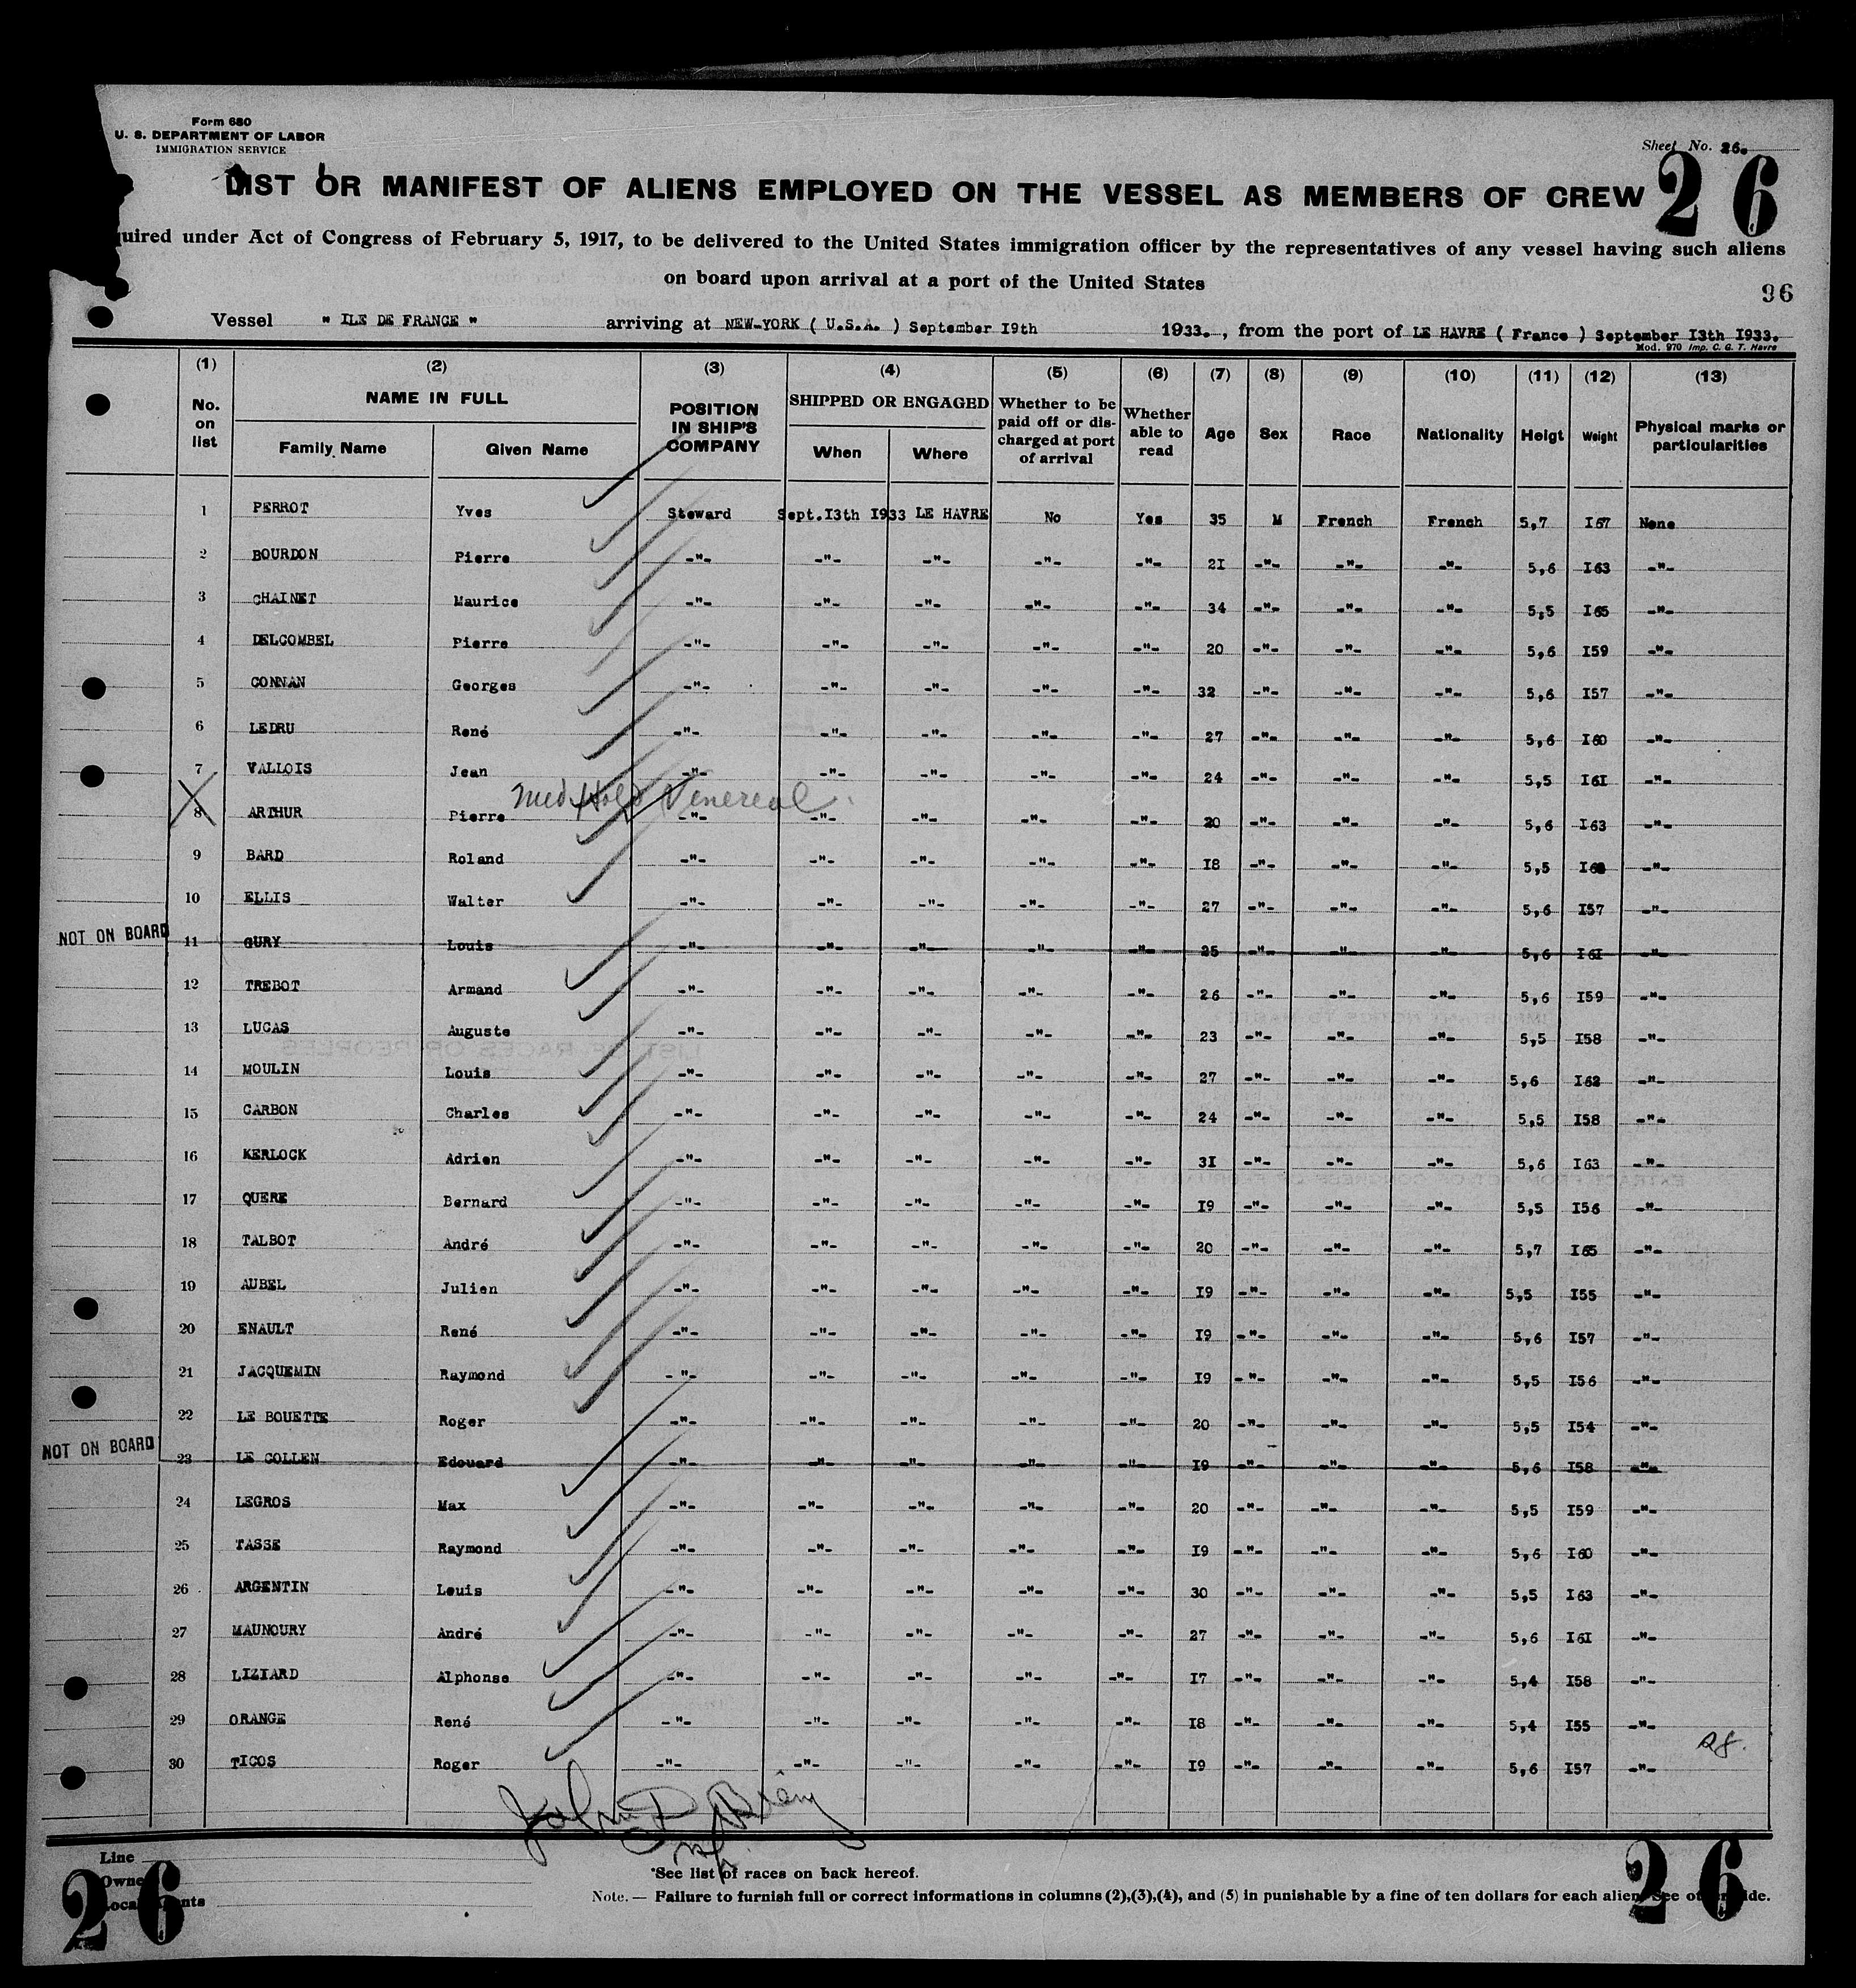 Form 680
U. S. DEPARTMENT OF LABOR
IMMIGRATION SERVICE
Sheet No. 26.
LIST OR MANIFEST OF ALIENS EMPLOYED ON THE VESSEL AS MEMBERS OF CREW 26
quired under Act of Congress of February 5, 1917, to be delivered to the United States immigration officer by the representatives of any vessel having such aliens
on board upon arrival at a port of the United States
96
Vessel " ILE DE FRANCE " arriving at NEW-YORK ( U.S.A. ) September I9th 1933. , from the port of LE HAVRE ( France ) September I3th I933.
Mod. 970 Imp. C. G. T. Havre
(1) No. on list (2) NAME IN FULL Family Name Given Name (3) POSITION IN SHIP'S COMPANY (4) SHIPPED OR ENGAGED When Where (5) Whether to be paid off or discharged at port of arrival (6) Whether able to read (7) Age (8) Sex (9) Race (10) Nationality (11) Heigt (12) Weight (13) Physical marks or particularities
1 PERROT Yves Steward Sept.I3th I933 LE HAVRE No Yes 35 M French French 5,7 I67 None
2 BOURDON Pierre -"- -"- -"- -"- -"- 2I -"- -"- -"- 5,6 I63 -"-
3 CHAINET Maurice -"- -"- -"- -"- -"- 34 -"- -"- -"- 5,5 I65 -"-
4 DELCOMBEL Pierre -"- -"- -"- -"- -"- 20 -"- -"- -"- 5,6 I59 -"-
5 CONNAN Georges -"- -"- -"- -"- -"- 32 -"- -"- -"- 5,6 I57 -"-
6 LEDRU René -"- -"- -"- -"- -"- 27 -"- -"- -"- 5,6 I60 -"-
7 VALLOIS Jean -"- -"- -"- -"- -"- 24 -"- -"- -"- 5,5 I6I -"-
Med Hold Venereal.
8 ARTHUR Pierre -"- -"- -"- -"- -"- 20 -"- -"- -"- 5,6 I63 -"-
9 BARD Roland -"- -"- -"- -"- -"- I8 -"- -"- -"- 5,5 -"-
10 ELLIS Walter -"- -"- -"- -"- -"- 27 -"- -"- -"- 5,6 I57 -"-
NOT ON BOARD 11 GURY Louis -"- -"- -"- -"- -"- 25 -"- -"- -"- 5,6 I6I -"-
12 TREBOT Armand -"- -"- -"- -"- -"- 26 -"- -"- -"- 5,6 I59 -"-
13 LUCAS Auguste -"- -"- -"- -"- -"- 23 -"- -"- -"- 5,5 I58 -"-
14 MOULIN Louis -"- -"- -"- -"- -"- 27 -"- -"- -"- 5,6 I62 -"-
15 CARBON Charles -"- -"- -"- -"- -"- 24 -"- -"- -"- 5,5 I58 -"-
16 KERLOCK Adrien -"- -"- -"- -"- -"- 3I -"- -"- -"- 5,6 I63 -"-
17 QUERE Bernard -"- -"- -"- -"- -"- I9 -"- -"- -"- 5,5 I56 -"-
18 TALBOT André -"- -"- -"- -"- -"- 20 -"- -"- -"- 5,7 I65 -"-
19 AUBEL Julien -"- -"- -"- -"- -"- I9 -"- -"- -"- 5,5 I55 -"-
20 ENAULT René -"- -"- -"- -"- -"- I9 -"- -"- -"- 5,6 I57 -"-
21 JACQUEMIN Raymond -"- -"- -"- -"- -"- I9 -"- -"- -"- 5,5 I56 -"-
22 LE BOUETTE Roger -"- -"- -"- -"- -"- 20 -"- -"- -"- 5,5 I54 -"-
NOT ON BOARD 23 LE COLLEN Edouard -"- -"- -"- -"- -"- I9 -"- -"- -"- 5,6 I58 -"-
24 LEGROS Max -"- -"- -"- -"- -"- 20 -"- -"- -"- 5,5 I59 -"-
25 TASSE Raymond -"- -"- -"- -"- -"- I9 -"- -"- -"- 5,6 I60 -"-
26 ARGENTIN Louis -"- -"- -"- -"- -"- 30 -"- -"- -"- 5,5 I63 -"-
27 MAUNOURY André -"- -"- -"- -"- -"- 27 -"- -"- -"- 5,6 I6I -"-
28 LIZIARD Alphonse -"- -"- -"- -"- -"- I7 -"- -"- -"- 5,4 I58 -"-
29 ORANGE René -"- -"- -"- -"- -"- I8 -"- -"- -"- 5,4 I55 -"-
28.
30 TICOS Roger -"- -"- -"- -"- -"- I9 -"- -"- -"- 5,6 I57 -"-
Line
Owne
Loca nts
26
*See list of races on back hereof.
Note. — Failure to furnish full or correct informations in columns (2),(3),(4), and (5) in punishable by a fine of ten dollars for each alien. See other side.
26